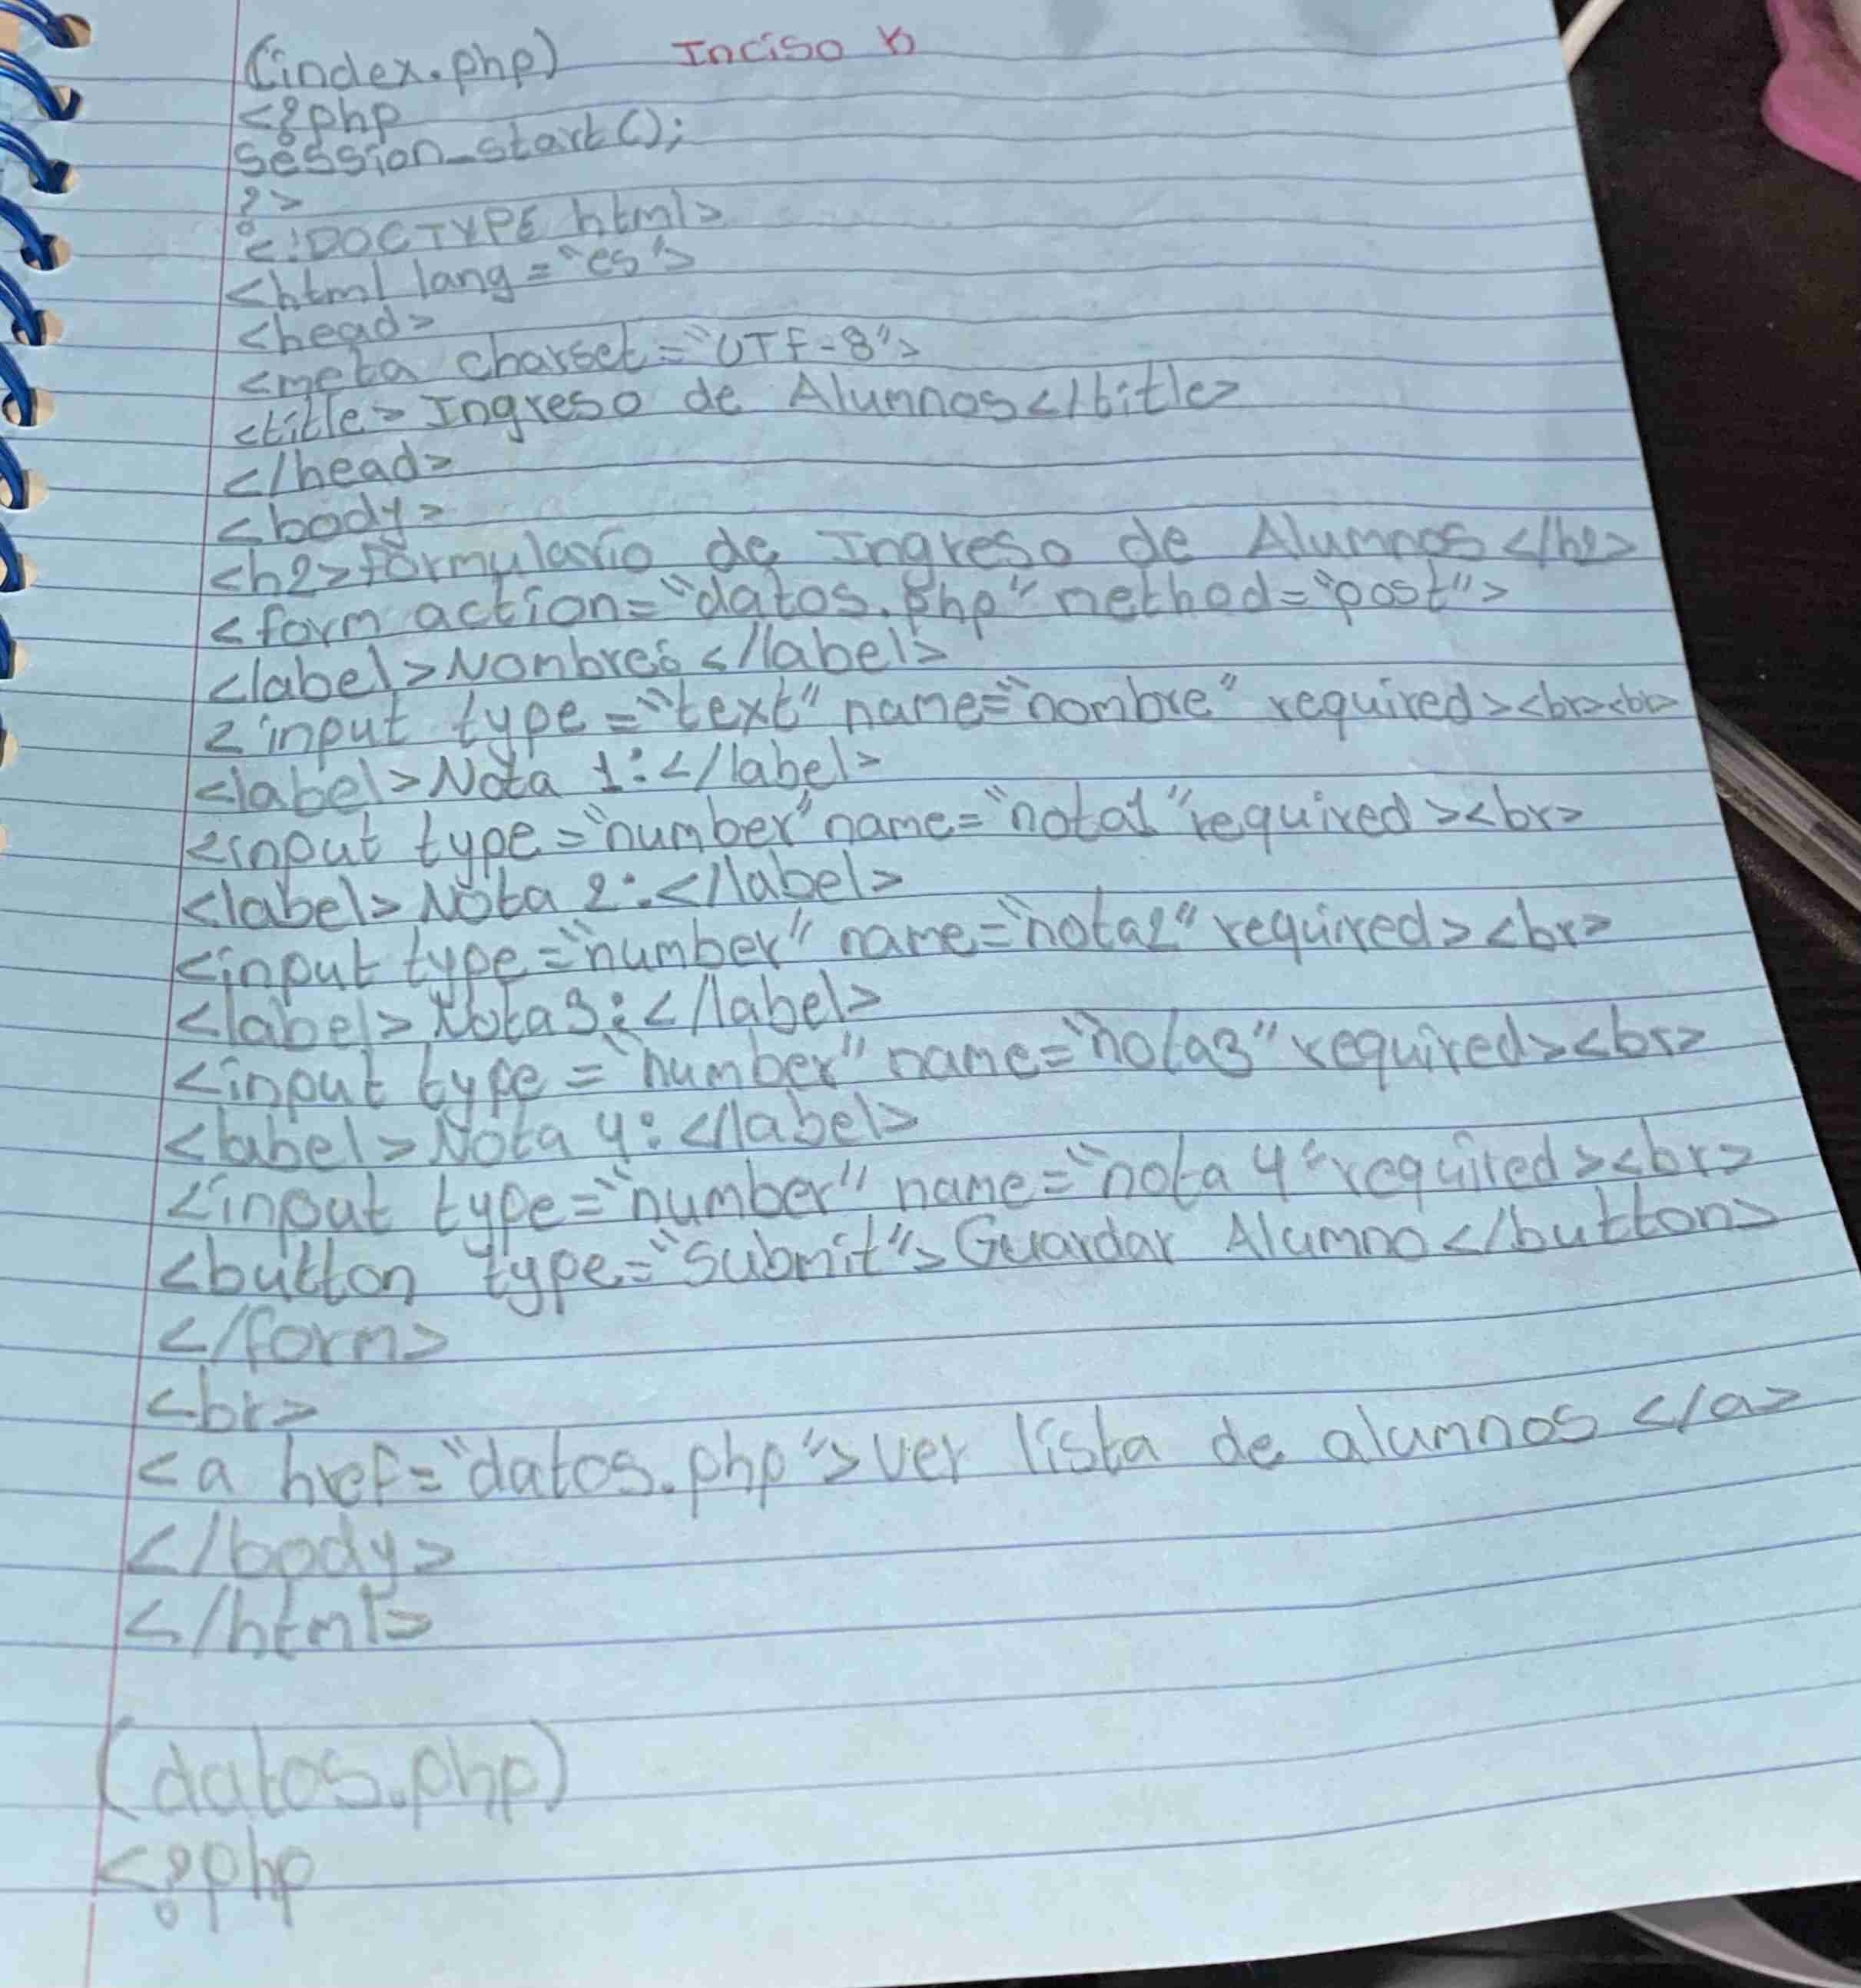 (index.php) Inciso b
<?php
session_start();
?>
<!DOCTYPE html>
<html lang="es">
<head>
<meta charset="UTF-8">
<title>Ingreso de Alumnos</title>
</head>
<body>
<h2>formulario de Ingreso de Alumnos</h2>
<form action="datos.php" method="post">
<label>Nombres</label>
<input type="text" name="nombre" required><br><br>
<label>Nota 1:</label>
<input type="number" name="nota1" required><br>
<label>Nota 2:</label>
<input type="number" name="nota2" required><br>
<label>Nota3:</label>
<input type="number" name="nota3" required><br>
<label>Nota 4:</label>
<input type="number" name="nota 4" required><br>
<button type="submit">Guardar Alumno</button>
</form>
<br>
<a href="datos.php">ver lista de alumnos </a>
</body>
</html>
(datos.php)
<?php